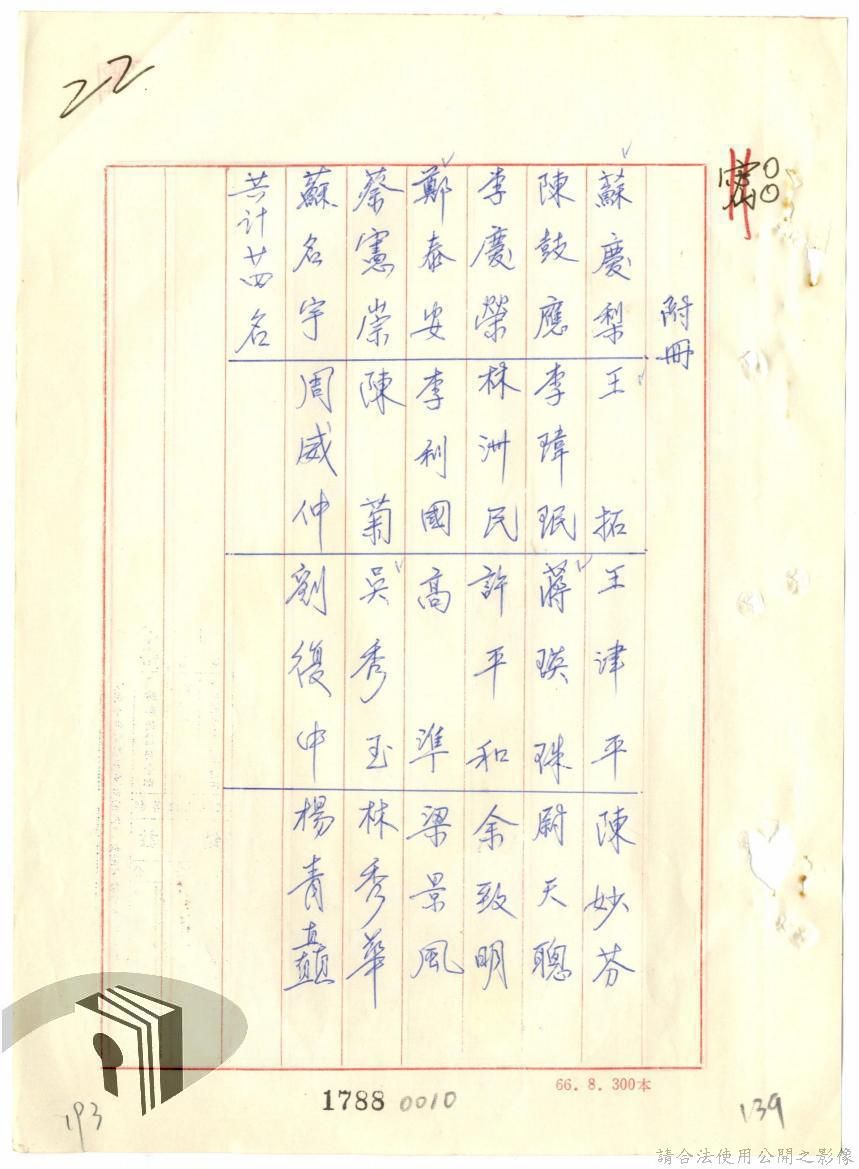 22
附冊
蘇慶梨 王拓 王津平 陳妙芬
陳鼓應 李瑋珉 蔣瑛珠 尉天聰
李慶榮 林洲民 許平和 余致明
鄭泰安 李利國 高準 梁景風
蔡憲崇 陳菊 吳秀玉 林秀華
蘇名宇 周威仲 劉復中 楊青矗
共计廿四名
66.8.300本
1788 0010
193
139
請合法使用公開之影像